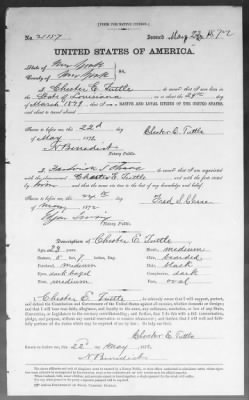 [FORM FOR NATIVE CITIZEN.]
No. 21157 Issued May 23, 1872
UNITED STATES OF AMERICA.
State of New York
County of New York } ss.
I, Chester E. Tuttle do swear that I was born in the
State of Louisiana, on or about the 29th day
of March 1849, that I am a NATIVE AND LOYAL CITIZEN OF THE UNITED STATES,
and
Sworn to before me, this 22d day
of May, 1872.
Chester E. Tuttle
N Benedict
Notary Public.
I, do swear that I am acquainted
with the above-named Chester E. Tuttle and with the facts stated
by him and that the same are true to the best of my knowledge and belief.
Sworn to before me, this day
of May 1872
Fred S. Chase
Notary Public.
Description of Chester E. Tuttle
Age, 23 Mouth, medium
Stature, 5 ft. 7 inches, Eng. Chin, bearded
Forehead, medium Hair, black
Eyes, dark hazel Complexion, dark
Nose, medium Face, oval
I, Chester E. Tuttle, do solemnly swear that I will support, protect,
and defend the Constitution and Government of the United States against all enemies, whether domestic or foreign;
and that I will bear true faith, allegiance, and loyalty to the same, any ordinance, resolution, or law of any State,
Convention, or Legislature to the contrary notwithstanding; and, further, that I do this with a full determination,
pledge, and purpose, without any mental reservation or evasion whatsoever; and, further, that I will well and faithfully
perform all the duties which may be required of me by law. So help me God.
Chester E. Tuttle
Sworn to before me, this 22 day of May, 1872.
N Benedict
Notary Public.